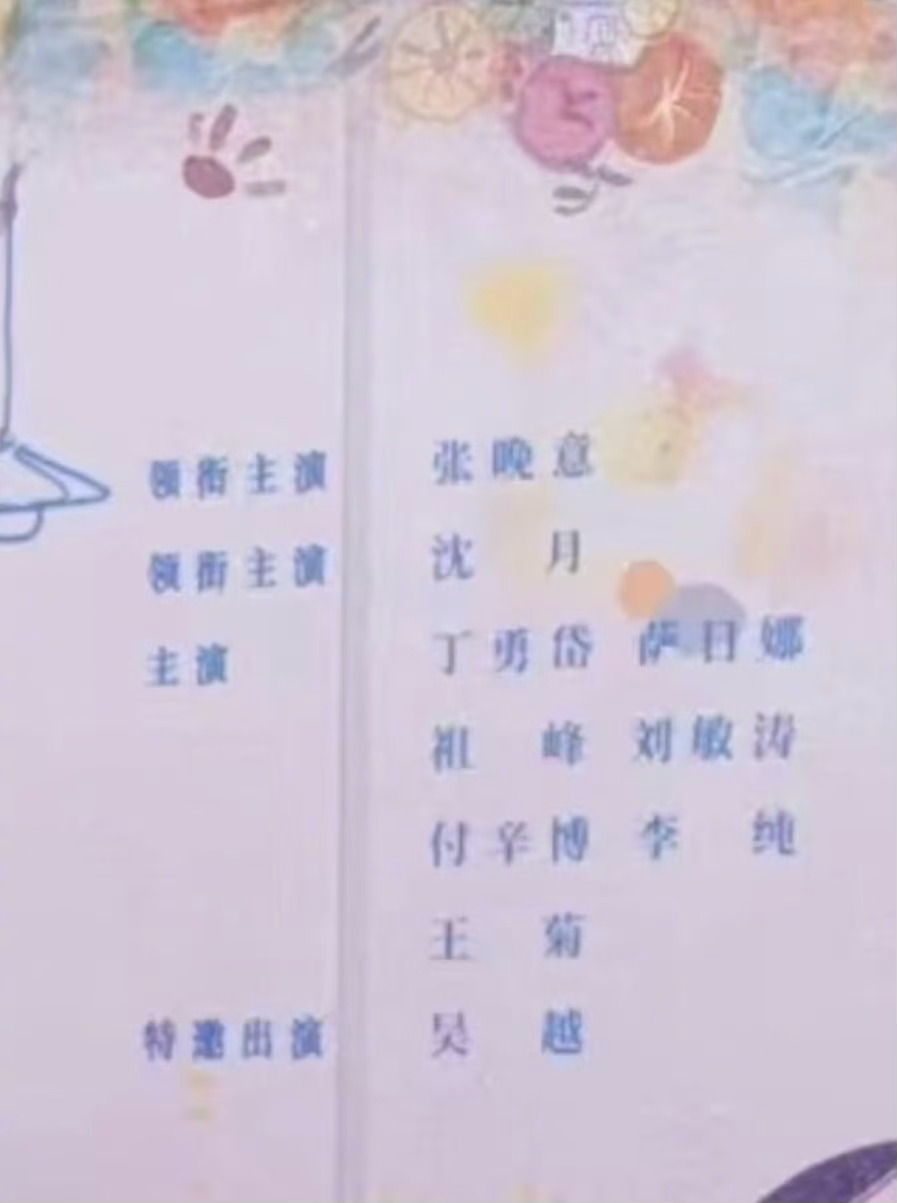 领衔主演 张晚意
领衔主演 沈月
主演 丁勇岱 萨日娜
祖峰 刘敏涛
付辛博 李纯
王菊
特邀出演 吴越